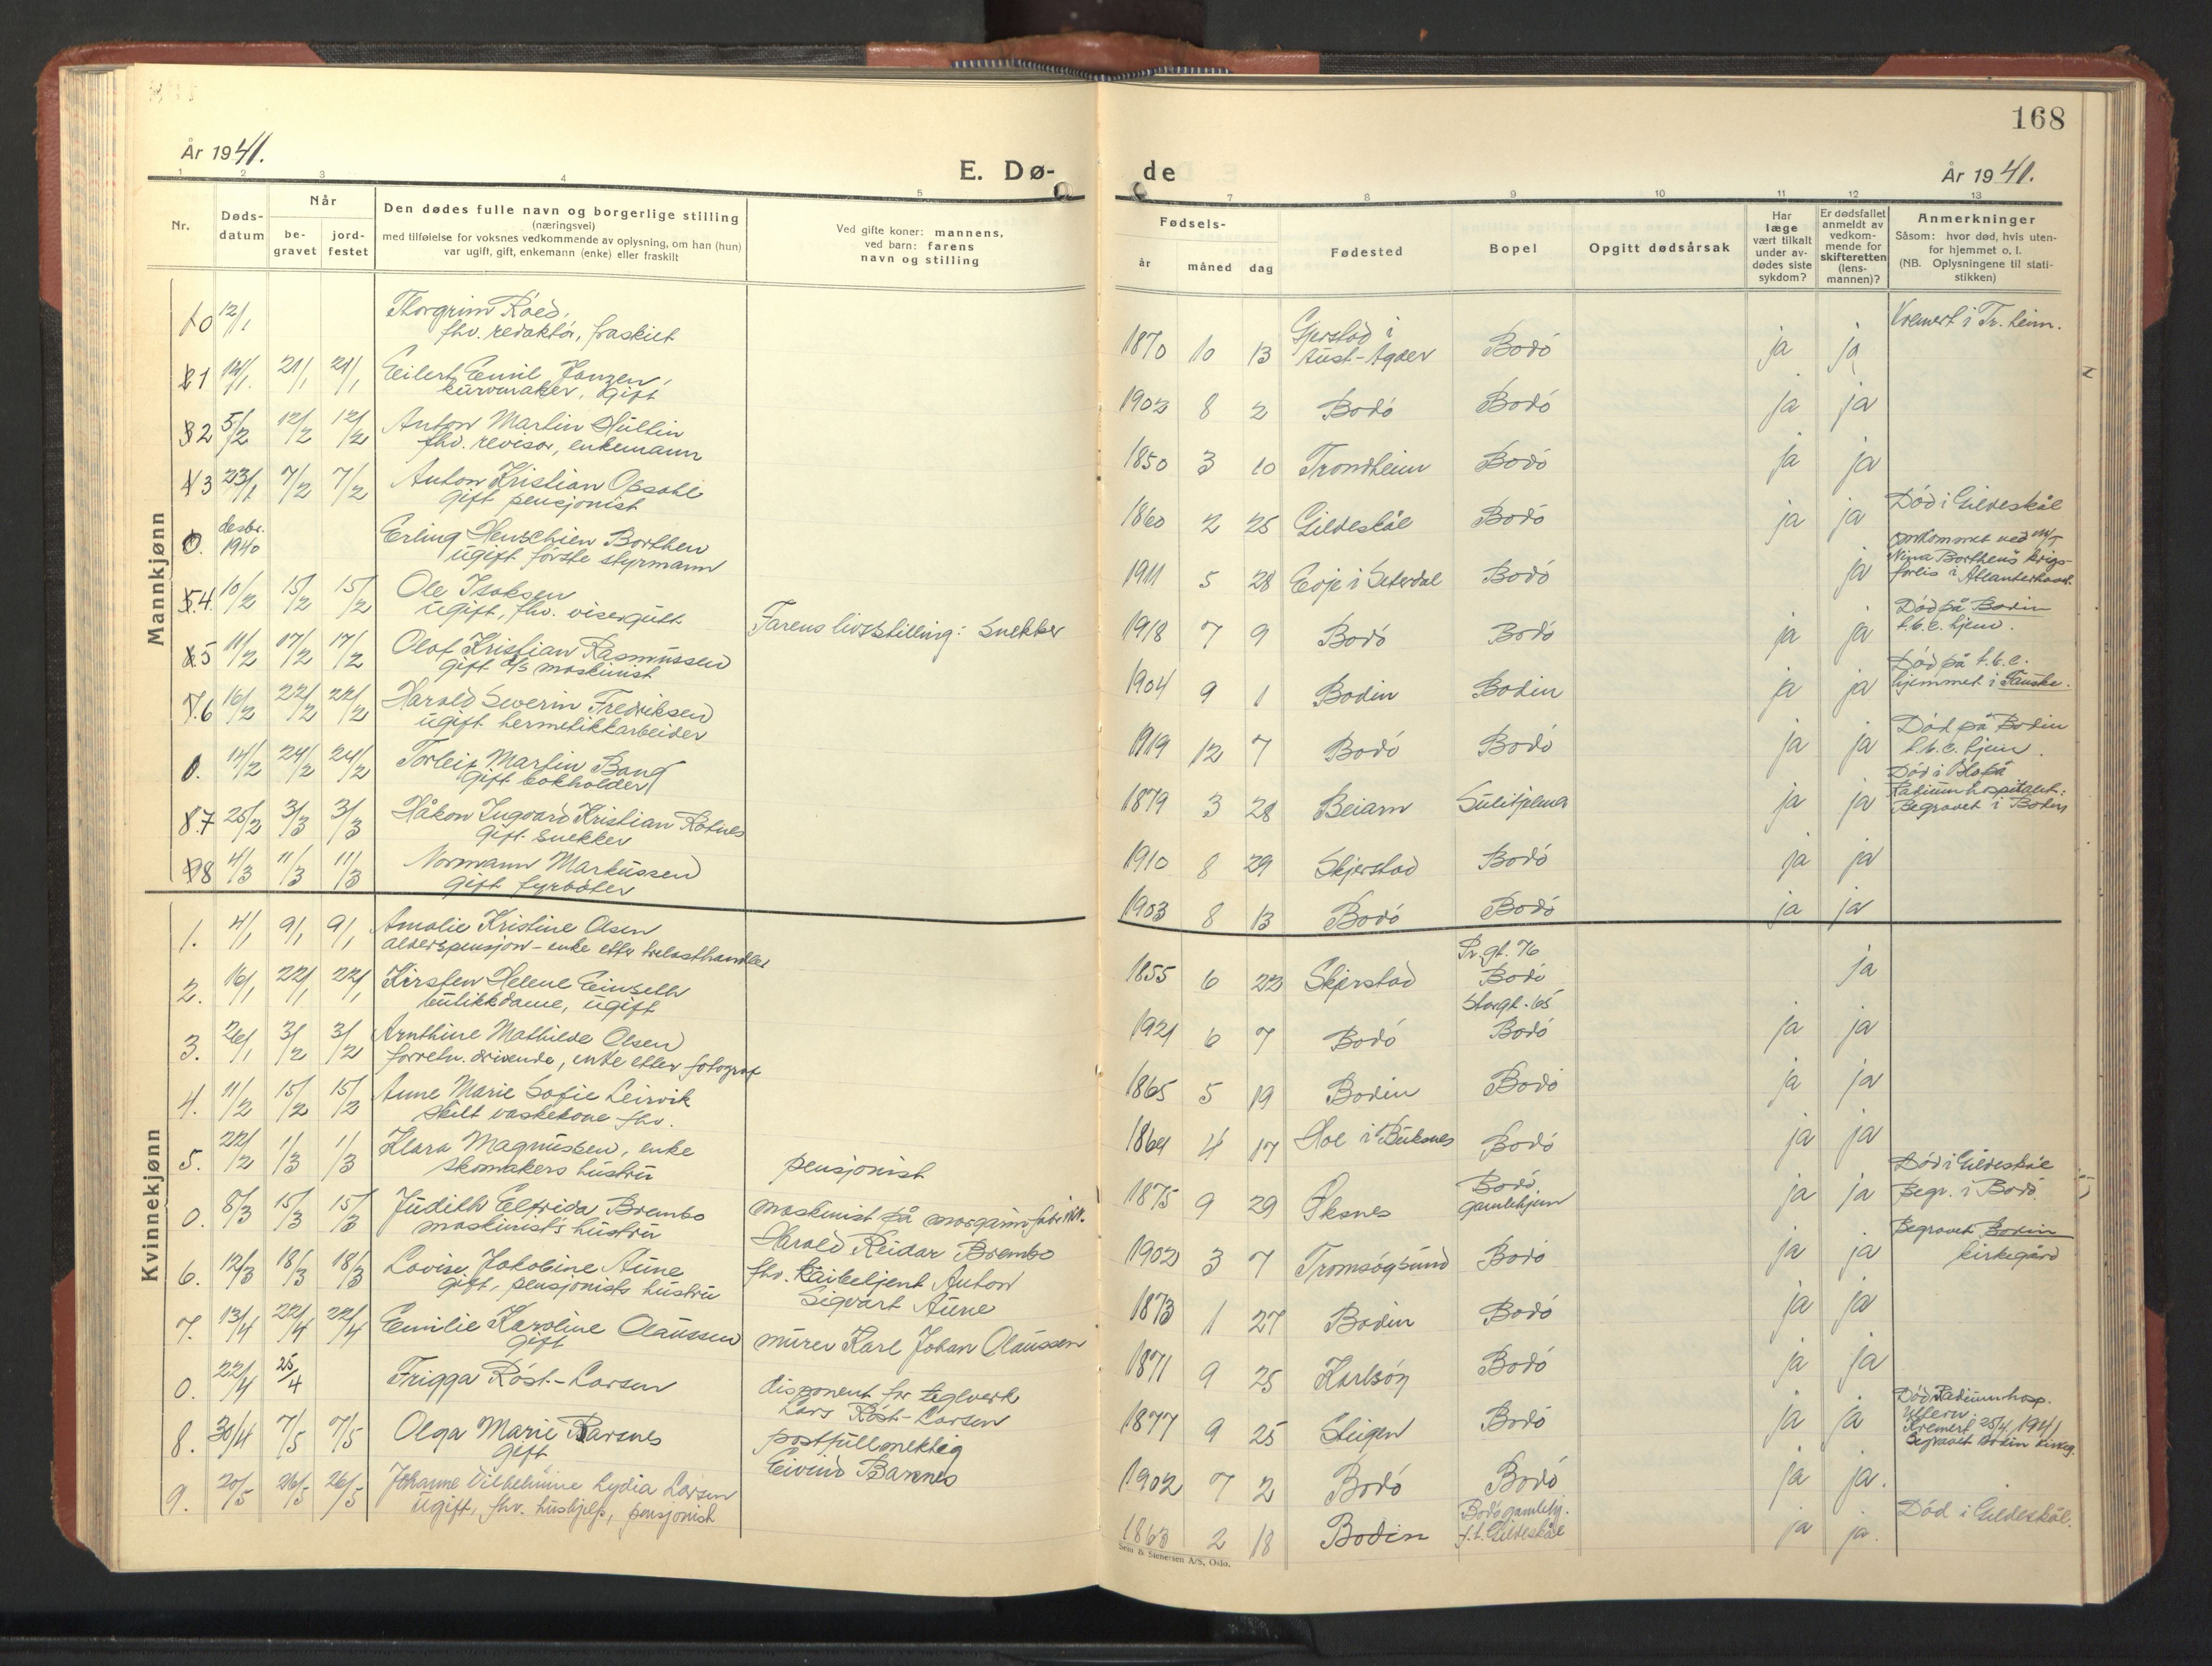 168
År 1941.
E. Dø-
de
År 1941.
1 2 3 4 5 7 8 9 10 11 12 13
Nr.
Døds-
datum
Når
be-
gravet
jord-
festet
Den dødes fulle navn og borgerlige stilling
(næringsvei)
med tilføielse for voksnes vedkommende av oplysning, om han (hun)
var ugift, gift, enkemann (enke) eller fraskilt
Ved gifte koner: mannens,
ved barn: farens
navn og stilling
Fødsels-
år måned dag
Fødested
Bopel
Opgitt dødsårsak
Har
læge
vært tilkalt
under av-
dødes siste
sykdom?
Er dødsfallet
anmeldt av
vedkom-
mende for
skifteretten
(lens-
mannen)?
Anmerkninger
Såsom: hvor død, hvis uten-
for hjemmet o. l.
(NB. Oplysningene til stati-
stikken)
Mannkjønn
0 12/1 Thorgrim Röed,
fhv. redaktör, fraskilt
1870 10 13 Gjerstad i
Aust-Agder Bodö ja ja Kremert i Tr. heim.
1 14/1. 21/1 21/1 Eilert Emil Jonzen,
kurvmaker, gift
1902 8 2 Bodö Bodö ja ja
2 5/2 12/2 12/2 Anton Martin Hultin
fhv. revisor, enkemann
1850 3 10 Trondheim Bodö ja ja
3 23/1 7/2 7/2 Anton Kristian Opsahl
gift pensjonist
1860 2 25 Gildeskål Bodö ja ja Död i Gildeskål
0. desbr.
1940 Erling Henschien Borthen
ugift förste styrmann
1911 5 28 Evje i Seterdal Bodö ja omkommet ved M/T
Nina Borthens krigs-
forlis i Atlanterhavet
4. 10/2 15/2 15/2 Ole Isaksen
ugift, fhv. visergutt Farens livsstilling: Snekker
1918 7 9 Bodö Bodö ja ja Död på Bodin
t.b.c. hjem.
5 11/2 17/2 17/2 Olaf Kristian Rasmussen
gift d/s maskinist
1904 9 1 Bodin Bodin ja ja Död på t.b.c.
hjemmet i Fauske.
6 16/2 22/2 22/2 Harald Severin Fredriksen
ugift hermetikkarbeider
1919 12 7 Bodö Bodö ja ja Död på Bodin
t.b.c. hjem.
0. 14/2 24/2 24/2 Torleif Martin Bang
gift bokholder
1879 3 28 Beiarn Sulitjelma ja ja Död i Oslo på
Radiumhospitalet:
Begravet i Bodin
7 25/2 3/3 3/3 Håkon Ingvard Kristian Rötnes
gift snekker
1910 8 29 Skjerstad Bodö ja ja
8 4/3 11/3 11/3 Normann Markussen
gift fyrböter
1903 8 13 Bodö Bodö ja ja
Kvinnekjønn
1. 4/1 9/1 9/1 Amalie Kristine Olsen
alderspensjon - enke etter trelasthandler
1855 6 22 Skjerstad Pr. gt. 76
Bodö ja
2. 16/1 22/1 22/1 Kirsten Helene Einseth
butikkdame, ugift
1921 6 7 Bodö Storgt. 65
Bodö ja ja
3. 26/1 3/2 3/2 Arnthine Mathilde Olsen
forretn. drivende, enke etter fotograf
1865 5 19 Bodin Bodö ja ja
4. 11/2 15/2 15/2 Anne Marie Sofie Leirvik
skilt vaskekone fhv.
1864 4 17 Hol i Buksnes Bodö ja ja
5. 22/2 1/3 1/3 Klara Magnussen, enke
skomakers hustru pensjonist
1875 9 29 Öksnes Bodö,
gamlehjem ja ja Död i Gildeskål
Begr. i Bodö.
0. 8/3 15/3 15/3 Judith Elfrida Brembo
maskinist's hustru maskinist på margarinfabrikk.
Harald Reidar Brembo
1902 3 7 Tromsøysund Bodö ja ja Begravet Bodin
kirkegård
6. 12/3 18/3 18/3 Lovise Jakobine Aune
gift, pensjonists hustru fhv. kaibetjent Anton
Sigvart Aune
1873 1 27 Bodin Bodö ja ja
7. 13/4 22/4 22/4 Emilie Karoline Olaussen
gift murer Karl Johan Olaussen
1871 9 25 Karlsöy Bodö ja ja
0. 22/4 25/4 Frigga Röst-Larsen disponent for teglverk
Lars Röst-Larsen
1877 9 25 Steigen Bodö ja ja Död Radiumhosp.
Ullern.
Kremert i 25/4. 1941
Begravet Bodin kirkeg.
8. 30/4 7/5 7/5 Olga Marie Barsnes
gift postfullmektig
Eivind Barsnes
1902 7 2 Bodö Bodö ja ja.
9. 20/5 26/5 26/5 Johanne Vilhelmine Lydia Larsen
ugift, fhv. hushjelp, pensjonist
1863 2 18 Bodin Bodö gamlehj.
f.t. Gildeskål ja ja. Död i Gildeskål.
Sem & Stenersen A/S, Oslo.